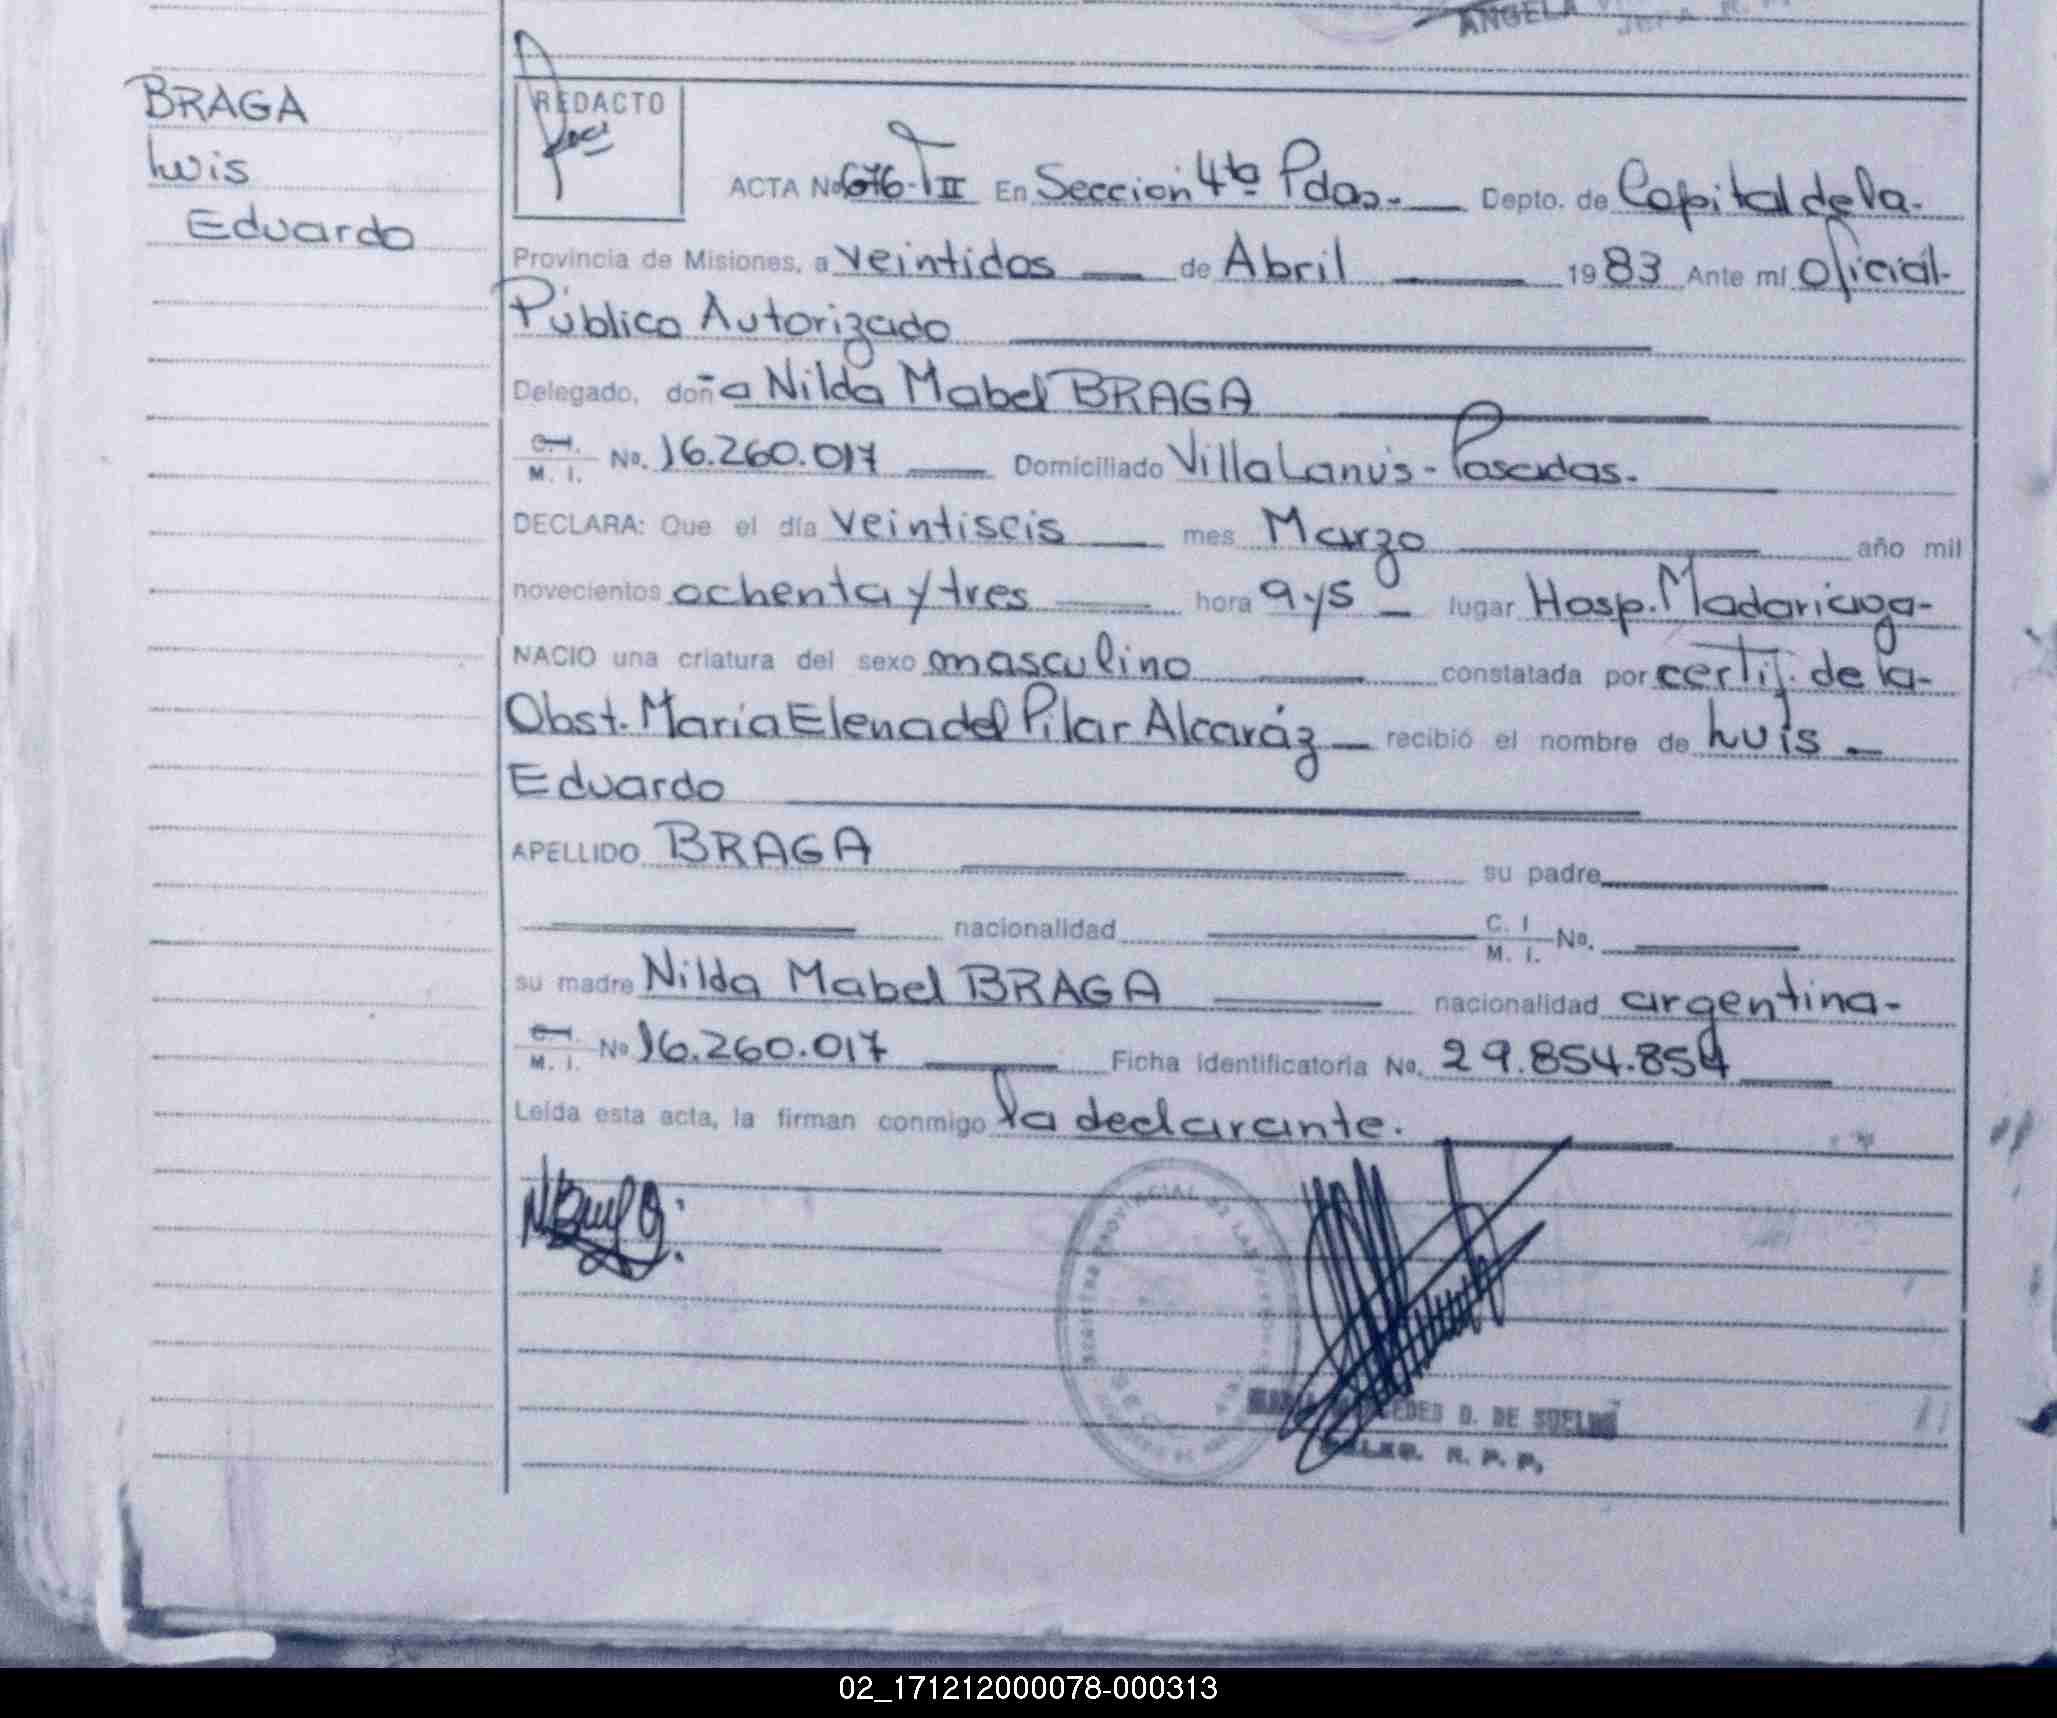 ANGELA
BRAGA
Luis
Eduardo
REDACTO
ACTA No 676-T II En Seccion 4ta Pdas.- Depto. de Capital de la-
Provincia de Misiones, a veintidos de Abril 1983 Ante mí Oficial-
Público Autorizado
Delegado, doña Nilda Mabel BRAGA
C.I. M. I. No. 16.260.017 Domiciliado Villa Lanús - Posadas.
DECLARA: Que el día veintiseis mes Marzo año mil
novecientos ochenta y tres hora 9 y 5 lugar Hosp. Madariaga-
NACIO una criatura del sexo masculino constatada por certif. de la-
Obst. María Elena del Pilar Alcaráz recibió el nombre de Luis
Eduardo
APELLIDO BRAGA su padre
nacionalidad C. I M. I. No.
su madre Nilda Mabel BRAGA nacionalidad argentina-
C.I. M. I. No 16.260.017 Ficha identificatoria No. 29.854.854
Leída esta acta, la firman conmigo la declarante.
D. DE
R. P. P.
02_171212000078-000313